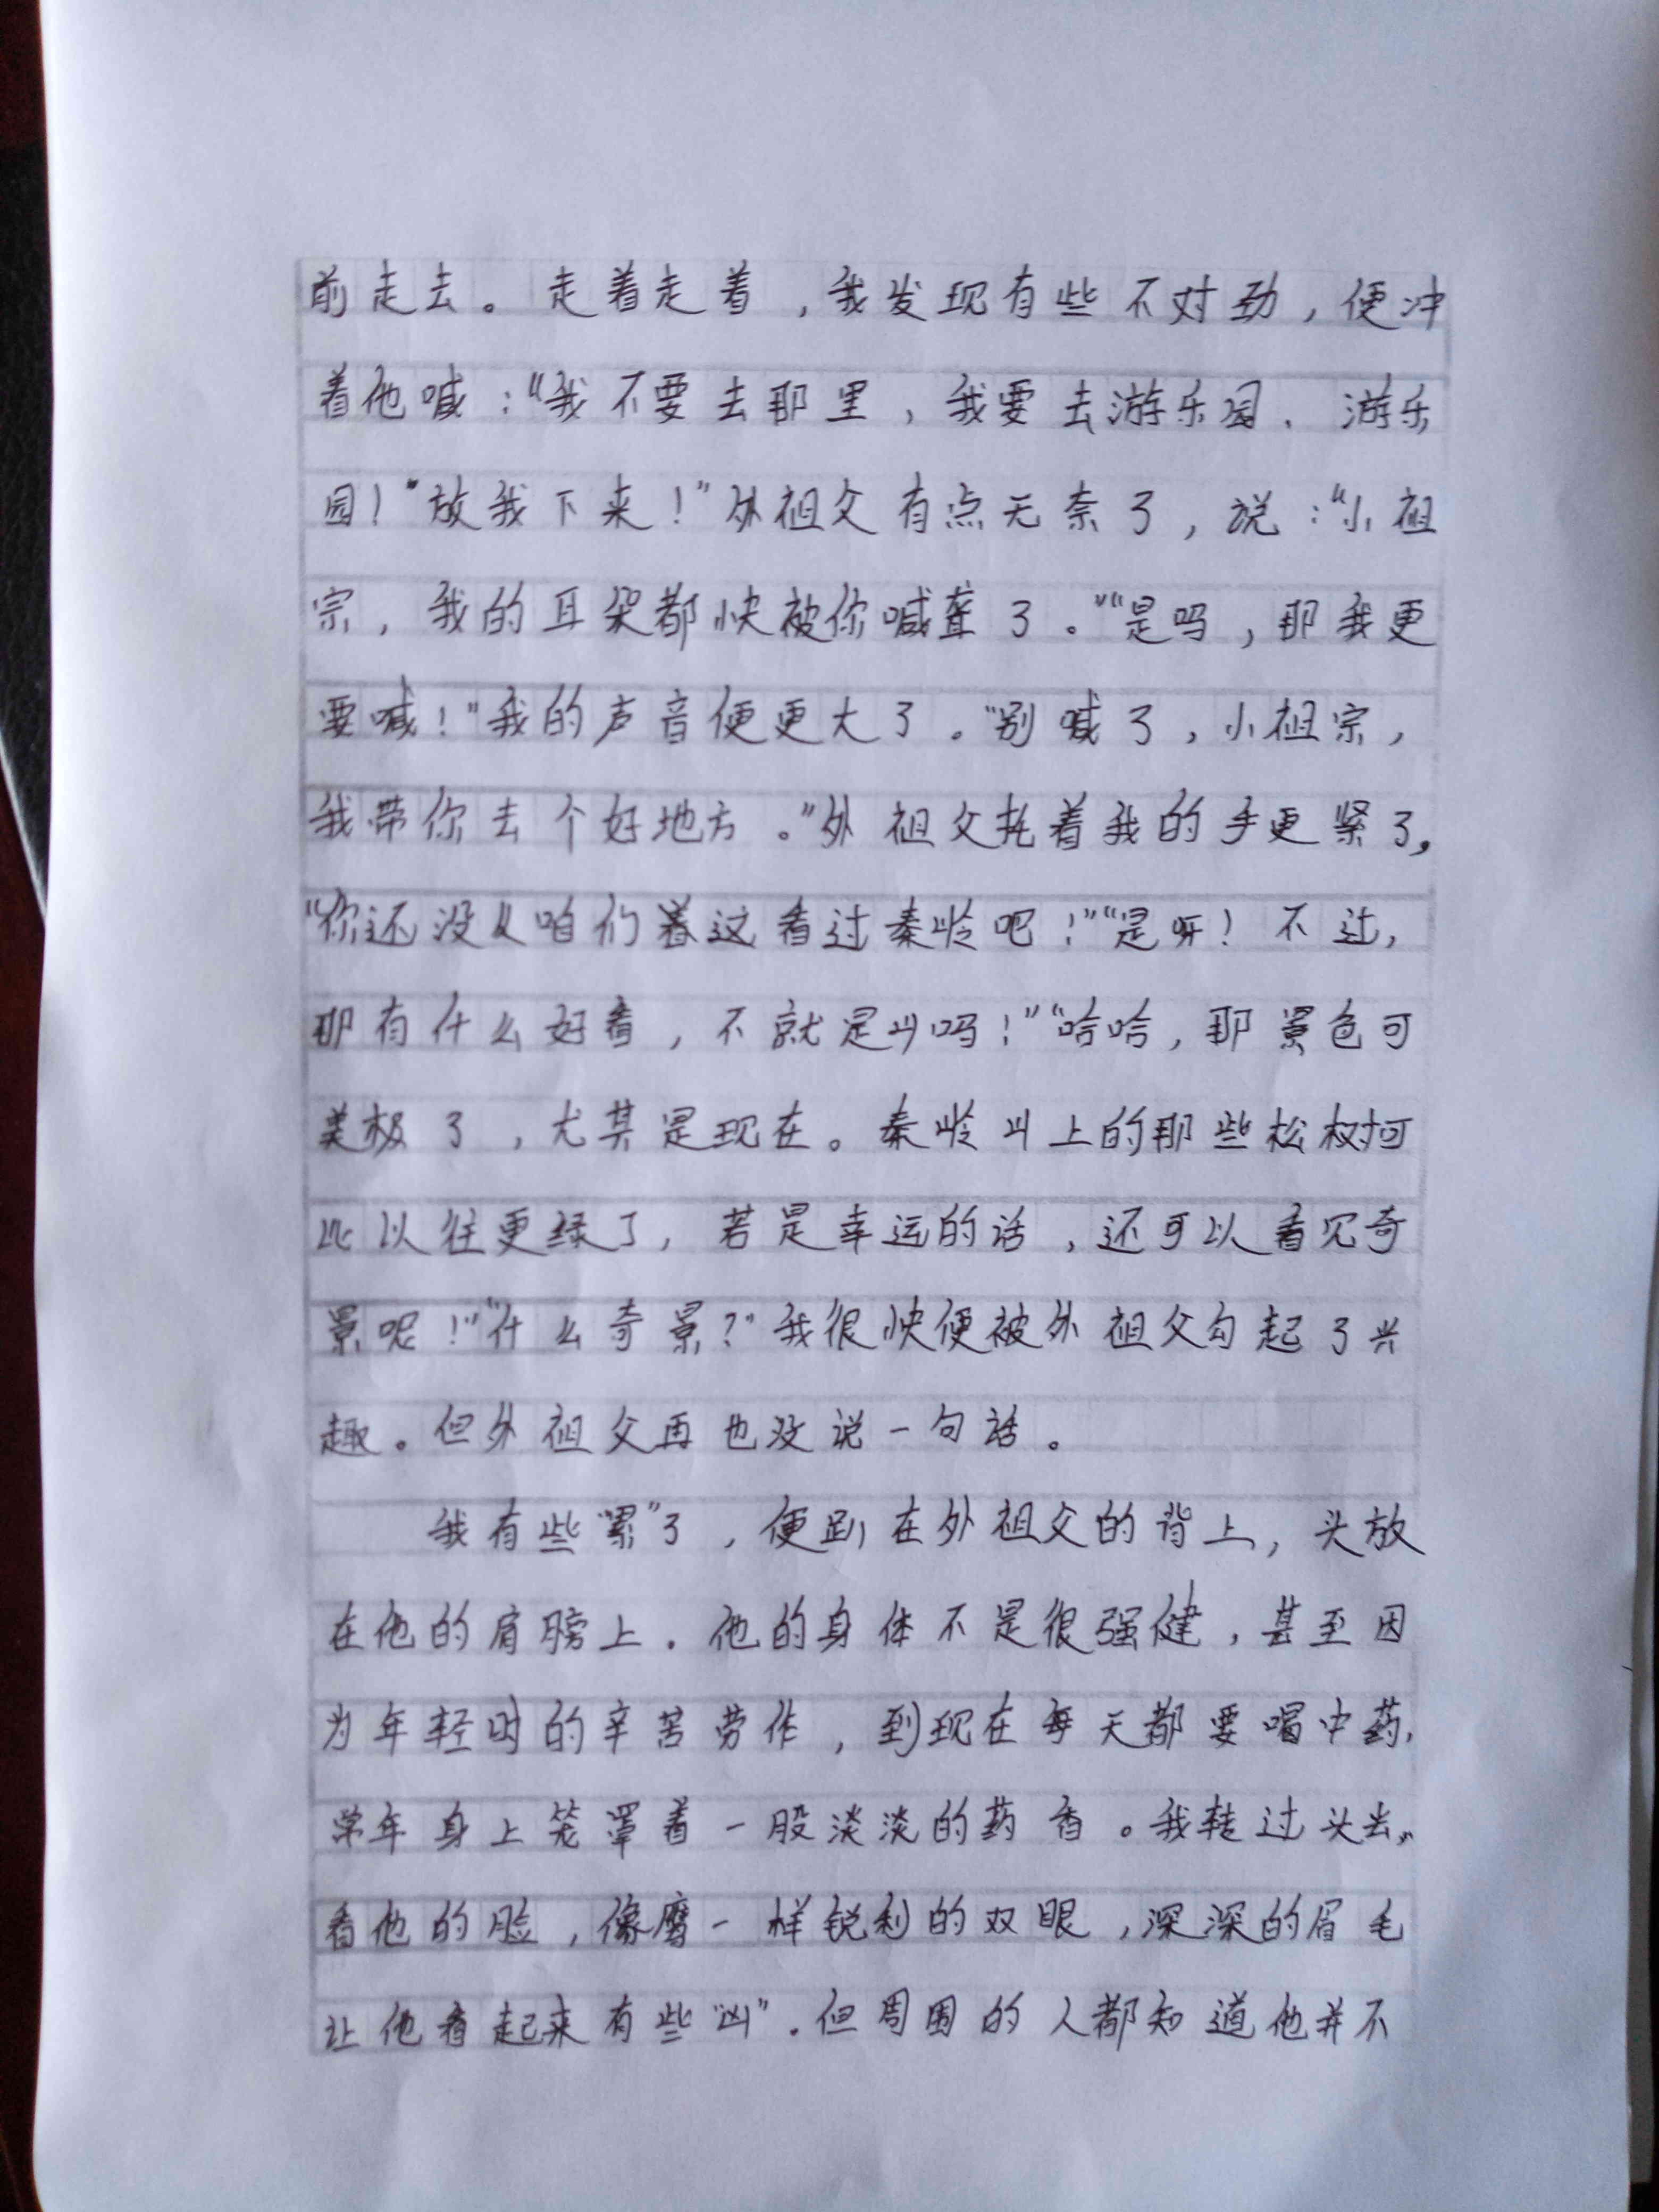 前走去。走着走着，我发现有些不对劲，便冲
着他喊：“我不要去那里，我要去游乐园，游乐
园！”“放我下来！”外祖父有点无奈了，说：“小祖
宗，我的耳朵都快被你喊聋了。”“是吗，那我更
要喊！”我的声音便更大了。“别喊了，小祖宗，
我带你去个好地方。”外祖父托着我的手更紧了，
“你还没从咱们着这看过秦岭吧！”“是呀！不过，
那有什么好看，不就是山吗！”“哈哈，那景色可
美极了，尤其是现在。秦岭山上的那些松树可
比以往更绿了，若是幸运的话，还可以看见奇
景呢！”“什么奇景？”我很快便被外祖父勾起了兴
趣。但外祖父再也没说一句话。
我有些“累”了，便趴在外祖父的背上，头放
在他的肩膀上。他的身体不是很强健，甚至因
为年轻时的辛苦劳作，到现在每天都要喝中药，
常年身上笼罩着一股淡淡的药香。我转过头去，
看他的脸，像鹰一样锐利的双眼，深深的眉毛
让他看起来有些“凶”。但周围的人都知道他并不